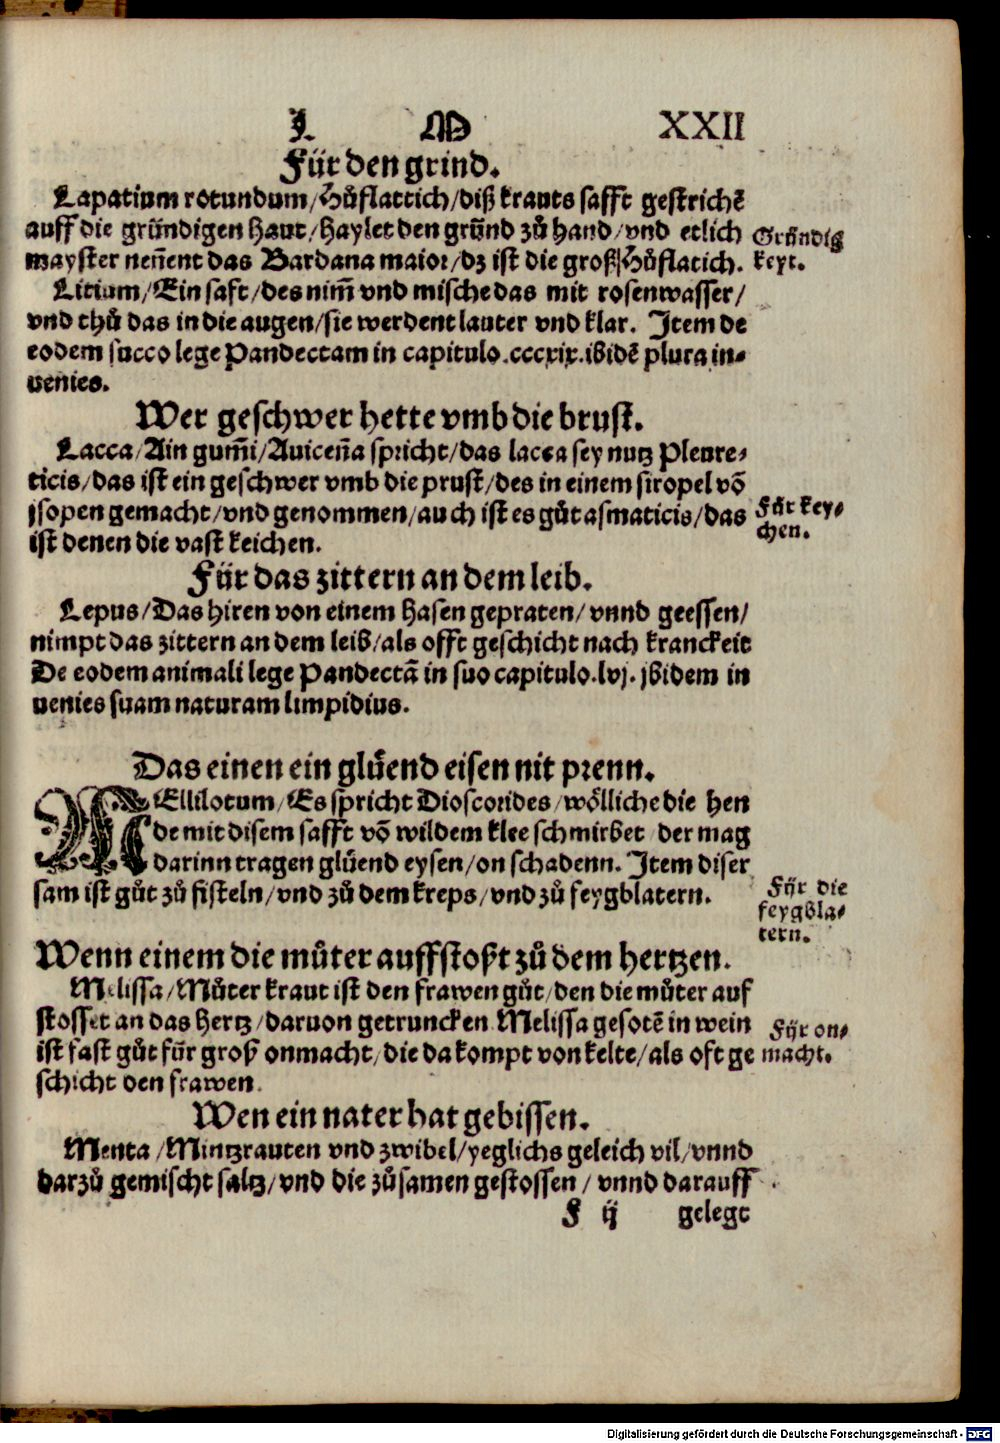 L M XXII
Für den grind.
Lapatium rotundum/Hůflattich/diß krauts safft gestrichẽ
auff die gründigen haut/haylet den gründ zů hand/vnd etlich
mayster neñent das Bardana maior/dz ist die groß Hůflatich.
Gründig
keyt.
Litium/Ein saft/des nim̃ vnd mische das mit rosenwasser/
vnd thů das in die augen/sie werdent lauter vnd klar. Item de
eodem succo lege Pandectam in capitulo.cccxix.ibidẽ plura in⸗
uenies.
Wer geschwer hette vmb die brust.
Lacca/Ain gum̃i/Auiceña spricht/das lacca sey nutz Pleure⸗
ticis/das ist ein geschwer vmb die prust/des in einem siropel võ
jsopen gemacht/vnd genommen/auch ist es gůt asmaticis/das
ist denen die vast keichen.
Für key⸗
chen.
Für das zittern an dem leib.
Lepus/Das hiren von einem hasen gepraten/vnnd geessen/
nimpt das zittern an dem leib/als offt geschicht nach kranckeit
De eodem animali lege Pandectã in suo capitulo.lvj.jbidem in
uenies suam naturam limpidius.
Das einen ein glüend eisen nit prenn.
MEllilotum/Es spricht Dioscorides/wölliche die hen
de mit disem safft võ wildem klee schmirbet der mag
darinn tragen glüend eysen/on schadenn. Item diser
sam ist gůt zů fisteln/vnd zů dem kreps/vnd zů feygblatern.
Für die
feygbla⸗
tern.
Wenn einem die můter auffstoßt zů dem hertzen.
Melissa/Můter kraut ist den frawen gůt/den die můter auf
stosset an das hertz/daruon getruncken Melissa gesotẽ in wein
ist fast gůt für groß onmacht/die da kompt von kelte/als oft ge
schicht den frawen.
Für on⸗
macht.
Wen ein nater hat gebissen.
Menta/Mintzrauten vnd zwibel/yeglichs geleich vil/vnnd
darzů gemischt saltz/vnd die zůsamen gestossen/vnnd darauff
F ij gelegt
Digitalisierung gefördert durch die Deutsche Forschungsgemeinschaft - DFG